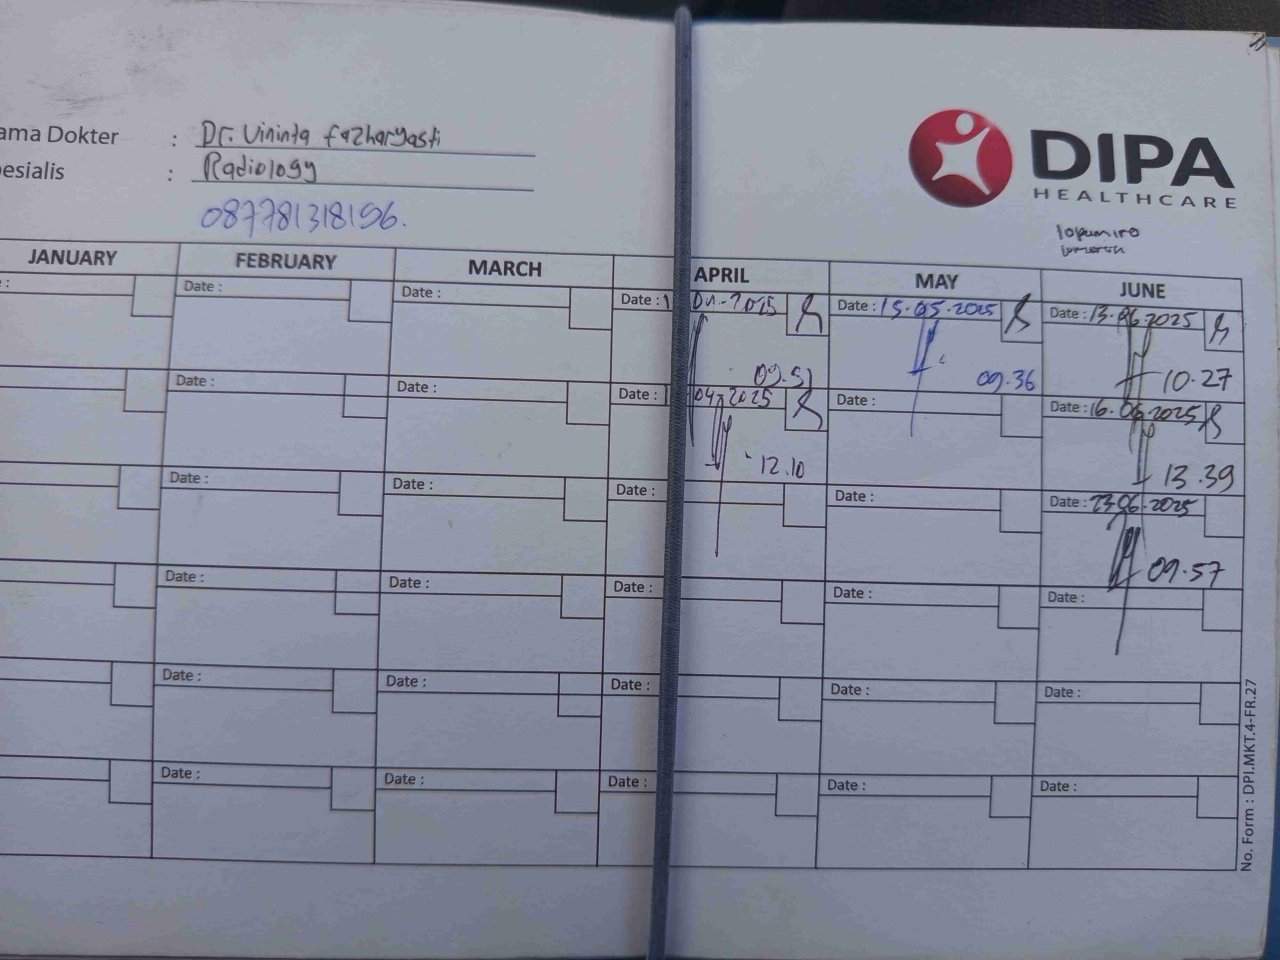 ama Dokter : Dr. Vininta fazharyasti
esialis : Radiology
087781318196.
DIPA
HEALTHCARE
Iopamiro
JANUARY FEBRUARY MARCH APRIL MAY JUNE
: Date : Date : Date : 1 04-2025 Date : 15.05.2025 Date : 13.06.2025
09.51 09.36 10.27
Date : Date : Date : 1 04-2025 Date : Date : 16.06.2025
12.10 13.39
Date : Date : Date : Date : Date : 23.06.2025
09.57
Date : Date : Date : Date : Date :
Date : Date : Date : Date : Date :
Date : Date : Date : Date : Date :
No. Form : DPI.MKT.4-FR.27